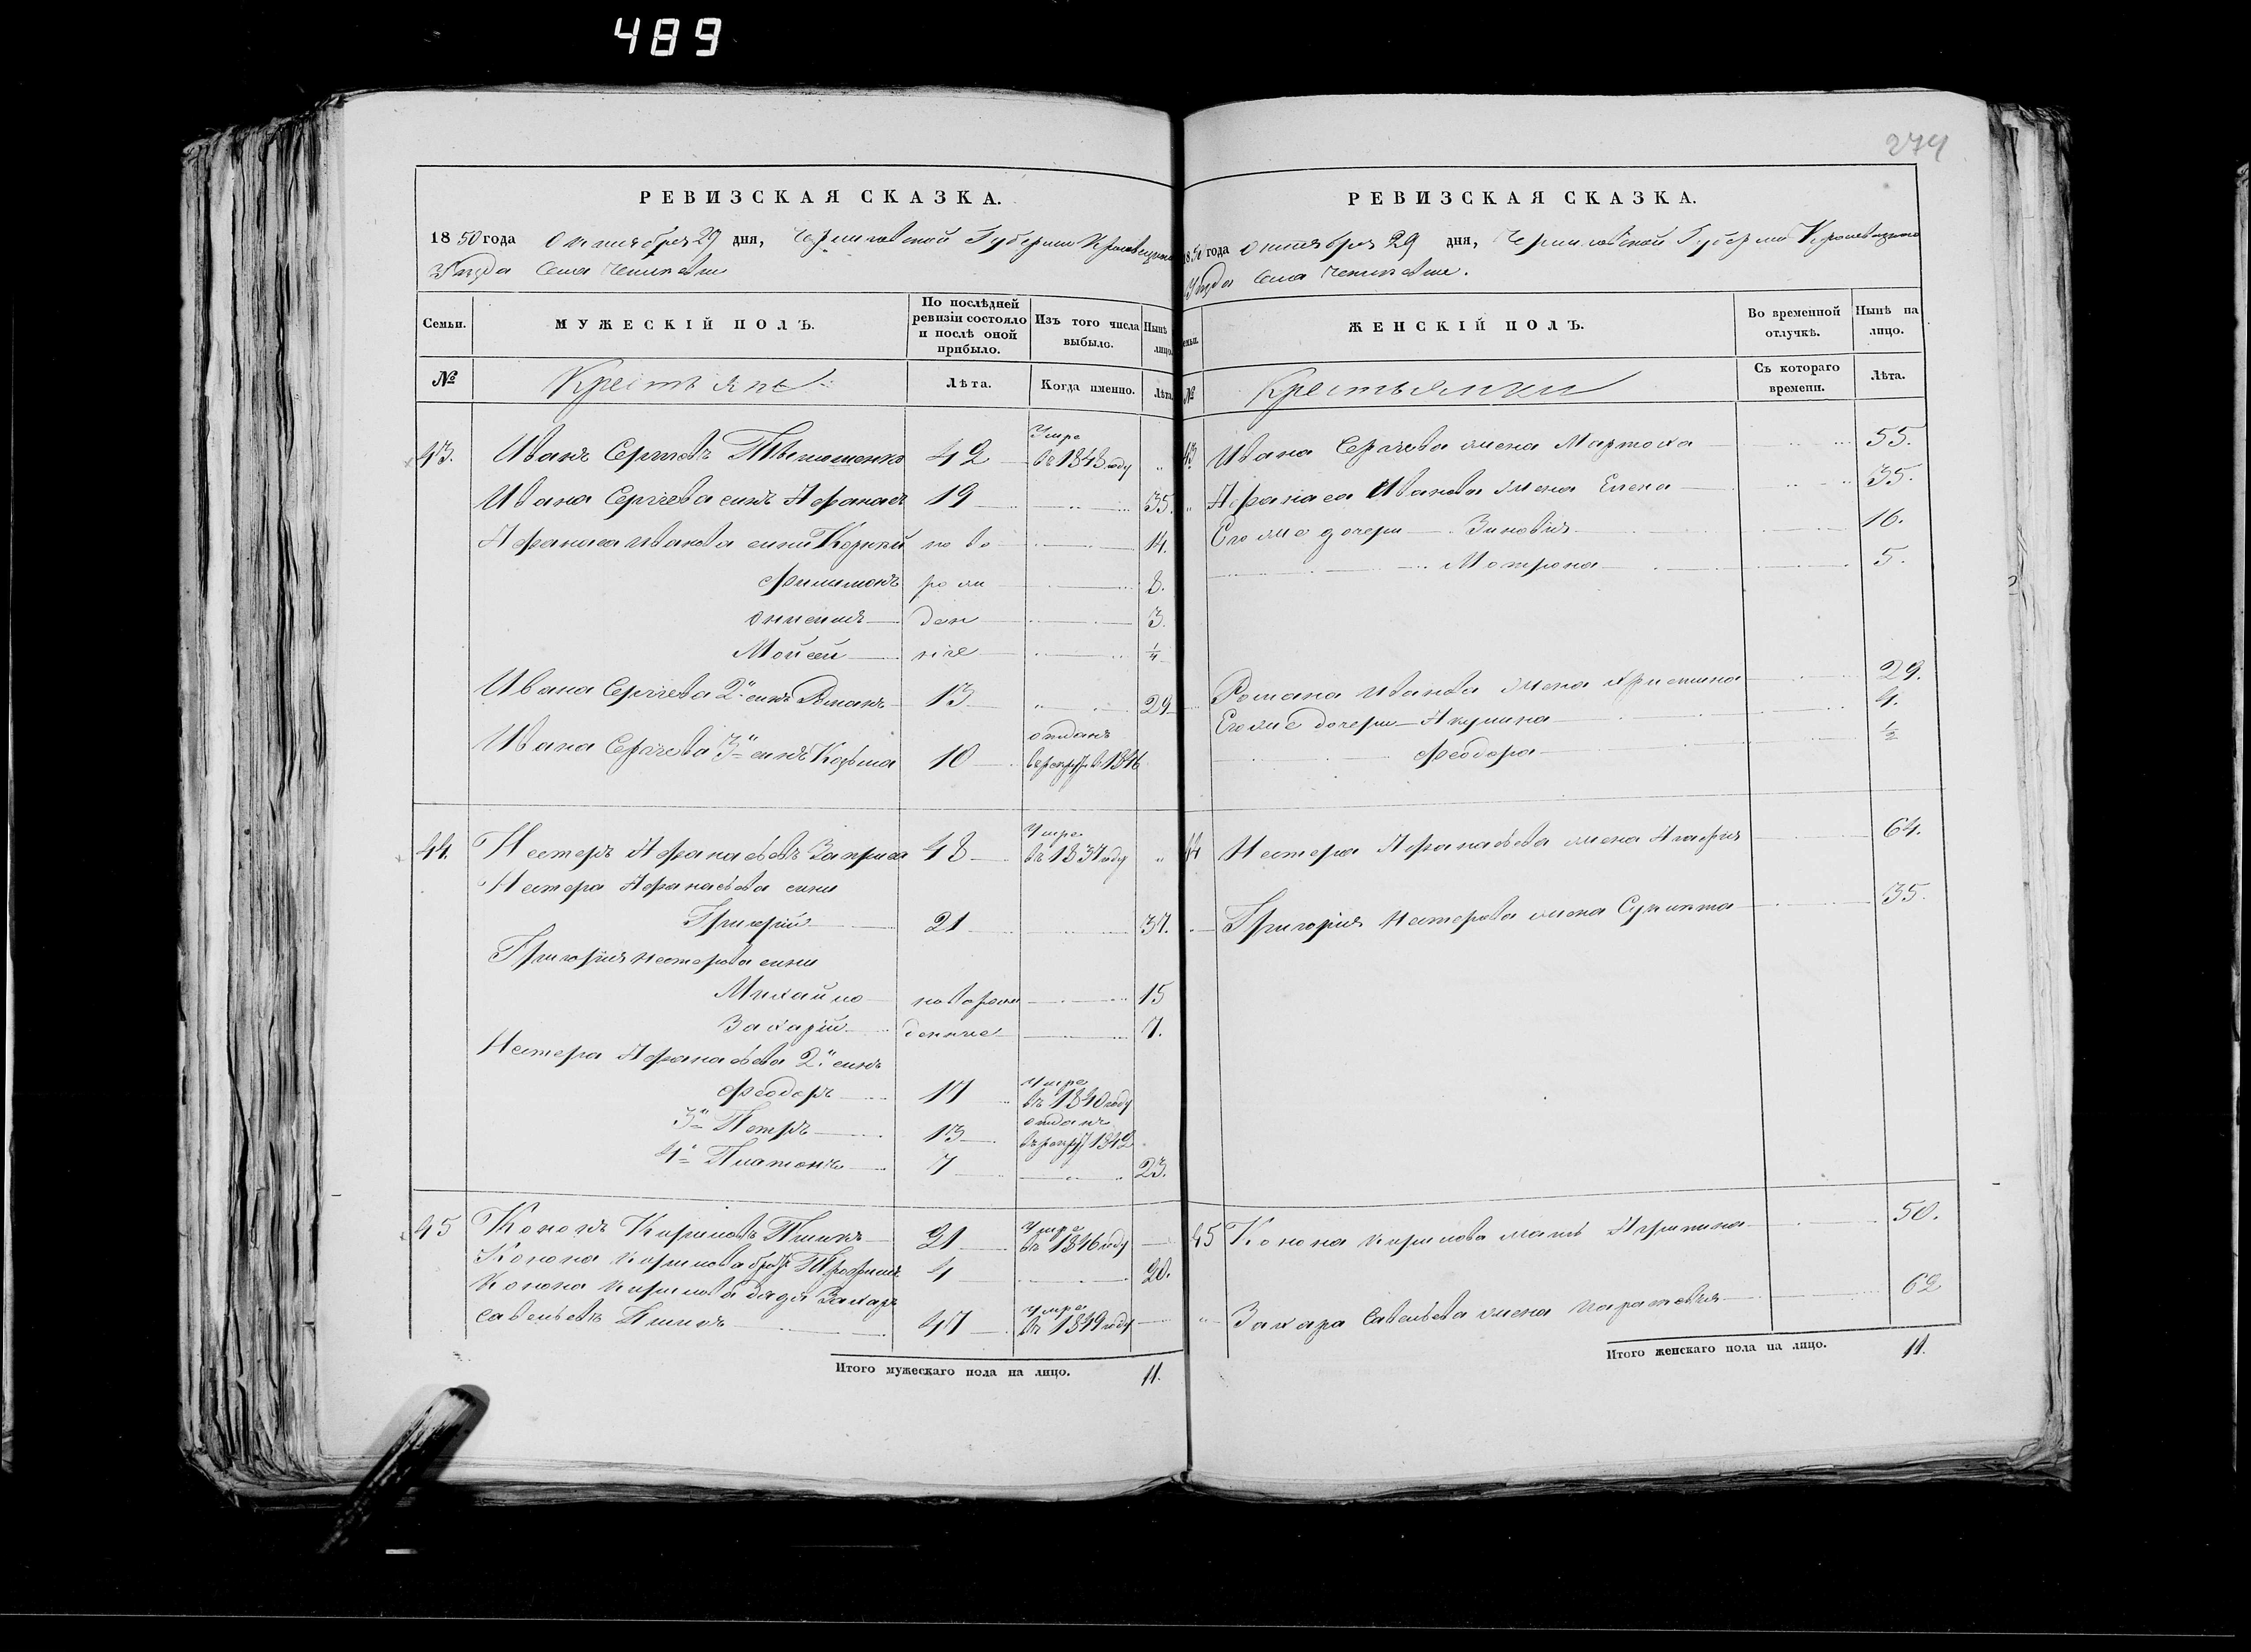 489
274
РЕВИЗСКАЯ СКАЗКА.
1850 года Октября 29 дня, Черниговской Губернии Кролевецкаго
Уезда Села
МУЖЕСКІЙ ПОЛЪ.
Семьи.
По послѣдней ревизіи состояло и послѣ оной прибыло.
Изъ того числа выбыло.
Нынѣ лицо.
№
Крестьяне
Лѣта.
Когда именно.
Лѣта.
43. Иванъ Сергіевъ 42 Умре въ 1848 году „
Ивана Сергіева сынъ Афанасъ 19 35.
Афанаса Иванова сыны Корнѣй ново 14.
Филимонъ рож 8.
Онисимъ ден 3.
Мойсей ніе 1/4
Ивана Сергіева 2й сынъ Романъ 13 29
Ивана Сергіева 3й сынъ Козьма 10 отданъ в рекруты в 1846
44. Нестеръ Афанасьевъ 48 Умре въ 1837 году „
Нестера Афанасьева сыны
Григорій 21 37.
Григорія Нестерова сыны
Михайло новорож 15
Захарій денные 7.
Нестера Афанасьева 2й сынъ
Феодоръ 17 Умре въ 1840 году
3й Петръ 13 отданъ в рекруты 1842
4й Платонъ 7 23.
45 Кононъ Кириловъ 21 Умре въ 1846 году
Конона Кирилова братъ Трофимъ 4 20.
Конона Кирилова дядя Захаръ
Савельевъ 47 Умре въ 1849 году
Итого мужескаго пола на лицо. 11.
РЕВИЗСКАЯ СКАЗКА.
1850 года Октября 29 дня, Черниговской Губерніи Кролевецкаго
Уезда Села
Семьи.
ЖЕНСКІЙ ПОЛЪ.
Во временной отлучкѣ.
Нынѣ на лицо.
№
Крестьянки
Съ котораго времени.
Лѣта.
43 Ивана Сергіева жена Мартоха 55.
„ Афанаса Иванова жена Елена 35.
Его же дочери Зиновія 16.
Мотрона 5.
Романа Иванова жена Христина 29.
Его же дочери Акулина 4.
Феодора 1/2
44 Нестера Афанасьева жена Агафія 64.
Григорія Нестерова жена 35.
45 Конона Кирилова мать Агрипина 50.
„ Захара Савельева жена Параскевія 62
Итого женскаго пола на лицо. 11.